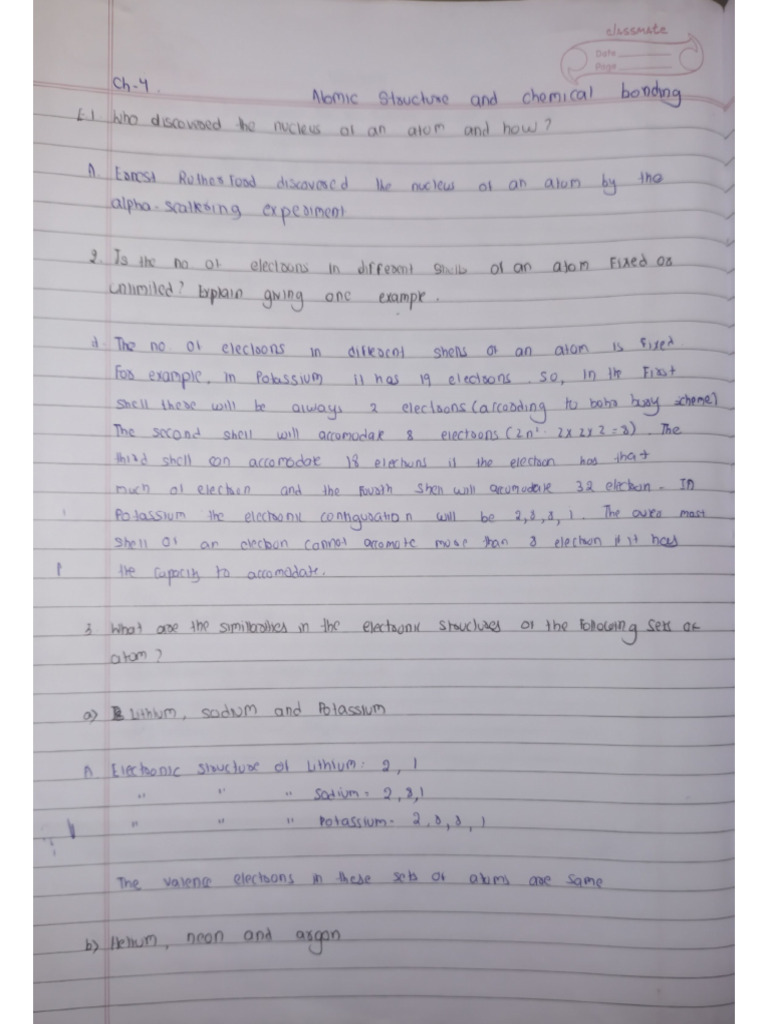 classmate
Date
Page
Ch-4.
Atomic Structure and chemical bonding
E.1 Who discovered the nucleus of an atom and how?
A. Earnest Rutherford discovered the nucleus of an atom by the
alpha-scattering experiment
2. Is the no of electrons in different shells of an atom fixed or
unlimited? Explain giving one example.
A. The no. of electrons in different shells of an atom is fixed.
For example, in Potassium it has 19 electrons. So, in the first
shell there will be always 2 electrons (according to bohr bury scheme)
The second shell will accomodate 8 electrons (2n² = 2x2x2=8). The
third shell can accomodate 18 electrons if the electron has that
much of electron and the fourth shell will accumodate 32 electron. In
Potassium the electronic configuration will be 2,8,8,1. The outer most
shell of an electron cannot accomate more than 8 electron if it has
the capacity to accomadate.
3. What are the similarities in the electronic structures of the following sets of
atom?
a) Lithium, sodium and Potassium
A Electronic structure of Lithium = 2, 1
" " " Sodium = 2,8,1
" " " Potassium = 2,8,8,1
The valence electrons in these sets of atoms are same
b) Helium, neon and argon